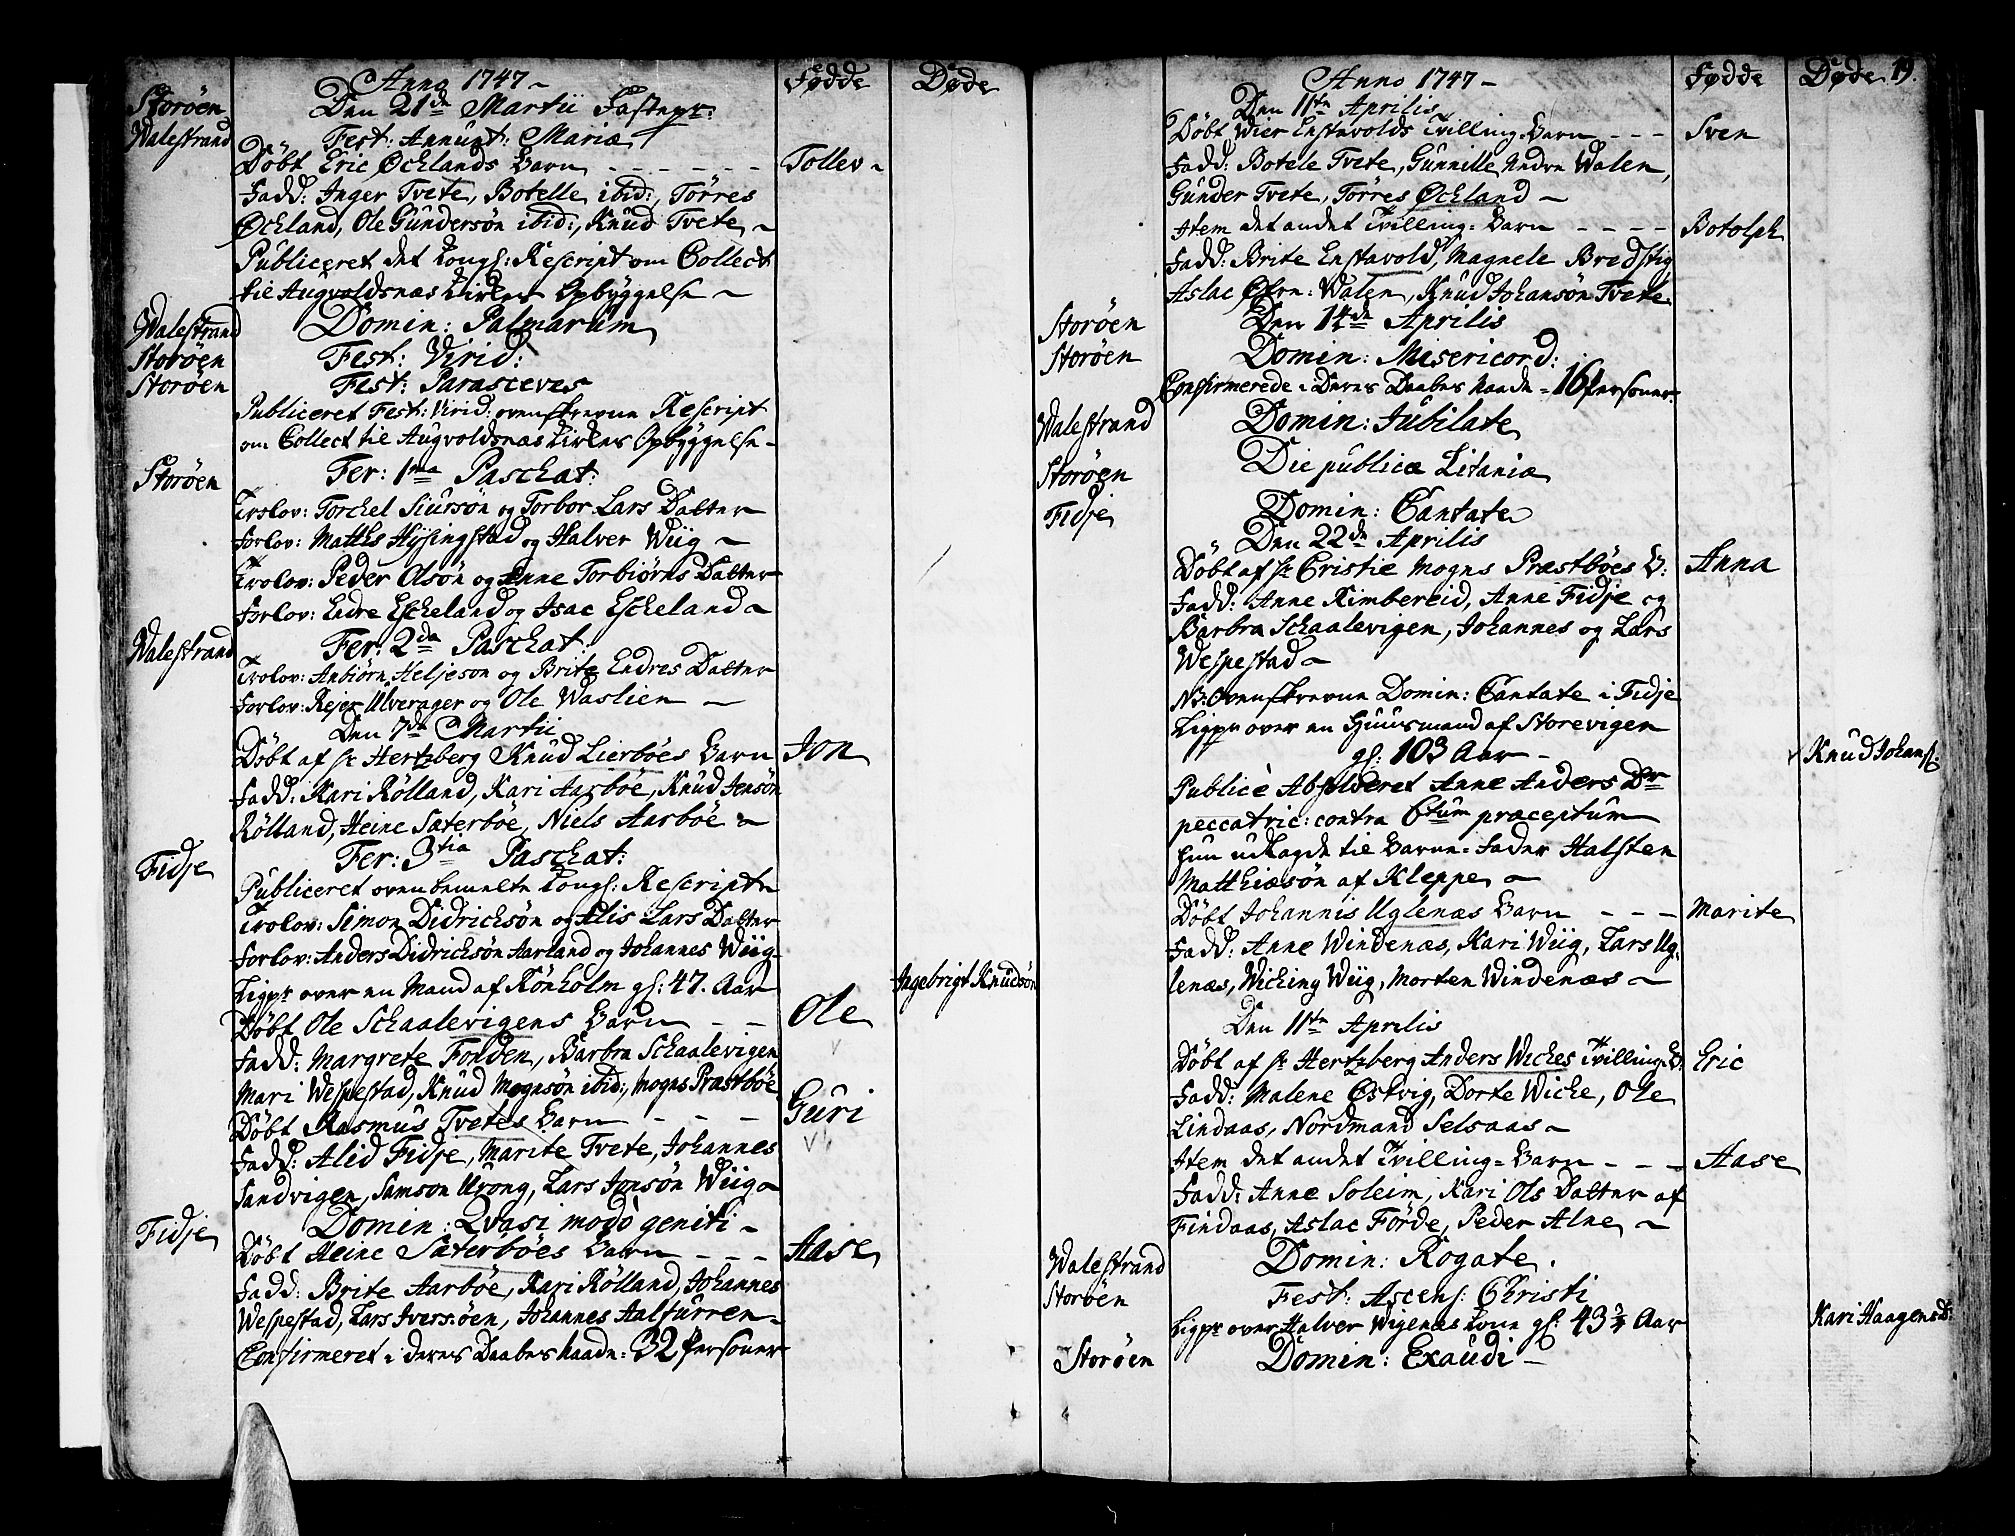 Anno 1747 Fødde Døde
Storöen Den 21de Martii Fastepr:
Walestrand Fest: Annunt: Mariæ
Döbt Eric Öcklands Barn - - - - - - Tollev
Fadd: Inger Tvete, Botelle ibid:, Törres
Öckland, Ole Gundersön ibid:, Knud Tvete
Publiceret det Kongl: Rescript om Collect
til Augvoldsnæs Kirkes Opbyggelse
Walestrand Domin: Palmarum
Storöen Fest: Virid:
Storöen Fest: Parasceves
Publiceret Fest: Virid: ovenskrevne Rescript
om Collect til Augvoldsnæs Kirkes Opbyggelse
Storöen Fer: 1ma Paschat:
Trolov: Torchel Siursön og Torbor Lars Datter
Forlov: Matthis Hysingstad og Halver Wiig
Trolov: Peder Olsön og Anne Torbiörns Datter
Forlov: Endre Escheland og Isac Escheland
Walestrand Fer: 2da Paschat:
Trolov: Anbiörn Heljeson og Brite Endres Datter
Forlov: Rejer Ulverager og Ole Waslien
Den 7de Martii
Döbt af Hr Hertzberg Knud Lierböes Barn Jon
Fadd: Kari Rölland, Kari Aarböe, Knud Jensön
Rölland, Heine Sæterböe, Niels Aarböe
Fidje Fer: 3tia Paschat:
Publiceret ovenbemelte Kongl: Rescript
Trolov: Simon Didricksön og Alis Lars Datter
Forlov: Anders Didricksön Aarland og Johannes Wiig
Ligpr over en Mand af Rönholm gl: 47. Aar Ingebrigt Knudsön
Döbt Ole Schaalevigens Barn - - Ole
Fadd: Margrete Forden, Barbra Schaalevigen
Mari Wespestad, Knud Mognsön ibid:, Mogns Præstböe
Döbt Rasmus Tvetes Barn - - - Guri
Fadd: Alid Fidje, Marite Tvete, Johannes
Sandvigen, Samson Urong, Lars Jonsön Wiig
Fidje Domin: Qvasi modo geniti
Döbt Heine Sæterböes Barn - - - Aase
Fadd: Brite Aarböe, Kari Rölland, Johannes
Wespestad, Lars Iversöen, Johannes Aalfurren
Confirmeret i deres Daabes Naade: 32 Personer
Anno 1747 Fødde Døde 19.
Den 11te Aprilis
Döbt Wier Enstavolds Tvilling-Barn - - - Sven
Fadd: Botele Tvete, Gunnille Nedre Walen,
Gunder Tvete, Törres Öckland
Item det andet Tvilling-Barn - - - - Botolph
Fadd: Brite Enstavold, Magnele Bredstig
Aslac Walen, Knud Johansön Tvete
Storöen Den 14de Aprilis
Storöen Domin: Misericord:
Confirmerede i Deres Daabes Naade - 16 Personer
Walestrand Domin: Jubilate
Storöen Die publicæ Litaniæ
Fidje Domin: Cantate
Den 22de Aprilis
Döbt af Hr Cristie Mogns Præstböes B: Anna
Fadd: Anne Kimbereid, Anne Fidje og
Barbra Schaalevigen, Johannes og Lars
Wespestad
NB: Ovenskrevne Domin: Cantate i Fidje
Ligpr over en Huusmand af Storevigen
gl: 103 Aar Knud Johansö:
Publicè Absolveret Anne Anders Dr
peccatric: contra 6tum præceptum
hun udlagde til Barne-Fader Halsten
Matthiæsön af Kleppe
Döbt Johannis Uglenæs Barn - - - Marite
Fadd: Anne Windenæs, Kari Wiig, Lars Ug-
lenæs, Wiching Wiig, Morten Windenæs
Den 11te Aprilis
Döbt af Hr Hertzberg Anders Wiches Tvilling-B: Eric
Fadd: Malene Östvig, Dorte Wiche, Ole
Lindaas, Nordmand Selsaas
Item det andet Tvilling-Barn - - - Aase
Fadd: Anne Soleim, Kari Ols Datter af
Findaas, Aslac Förde, Peder Alne
Walestrand Domin: Rogate
Storöen Fest: Ascens: Christi
Ligpr over Halver Wigenæs Kone gl: 43 3/4 Aar Kari Haagensd:
Storöen Domin: Exaudi